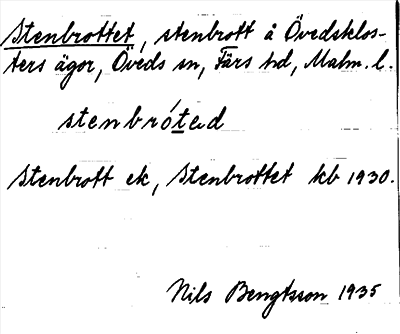 Stenbrottet, stenbrott å Övedsklos-
ters ägor, Öveds sn, Färs hd, Malm. l.
stenbrótad
Stenbrott ek, Stenbrottet kb 1930.
Nils Bengtsson 1935